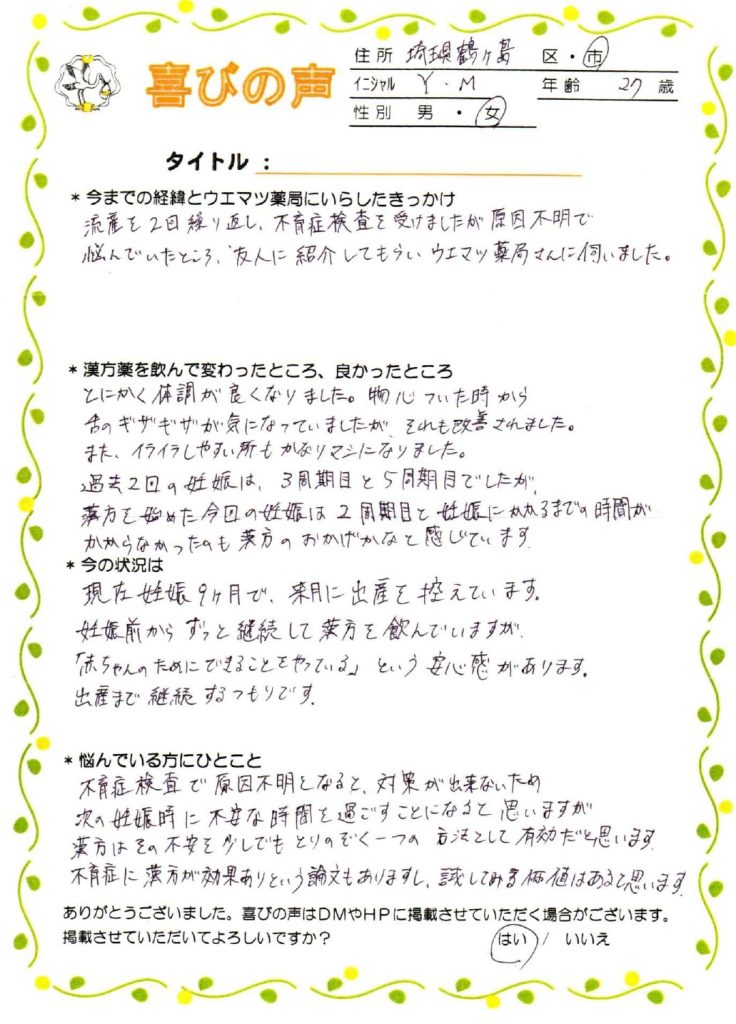 喜びの声
住所 埼玉県鶴ヶ島 区・市
イニシャル Y・M 年齢 27 歳
性別 男・女
タイトル：
* 今までの経緯とウエマツ薬局にいらしたきっかけ
流産を2回繰り返し、不育症検査を受けましたが原因不明で
悩んでいたところ、友人に紹介してもらいウエマツ薬局さんに伺いました。
* 漢方薬を飲んで変わったところ、良かったところ
とにかく体調が良くなりました。物心ついた時から
舌のギザギザが気になっていましたが、それも改善されました。
また、イライラしやすい所もかなりマシになりました。
過去2回の妊娠は、3周期目と5周期目でしたが、
漢方を始めた今回の妊娠は2周期目と妊娠にかかるまでの時間が
かからなかったのも漢方のおかげかなと感じています。
* 今の状況は
現在妊娠9ヶ月で、来月に出産を控えています。
妊娠前からずっと継続して漢方を飲んでいますが、
「赤ちゃんのためにできることをやっている」という安心感があります。
出産まで継続するつもりです。
* 悩んでいる方にひとこと
不育症検査で原因不明となると、対策が出来ないため
次の妊娠時に不安な時間を過ごすことになると思いますが
漢方はその不安を少しでもとりのぞく一つの方法として有効だと思います。
不育症に漢方が効果ありという論文もありますし、試してみる価値はあると思います。
ありがとうございました。喜びの声はDMやHPに掲載させていただく場合がございます。
掲載させていただいてよろしいですか？ はい / いいえ